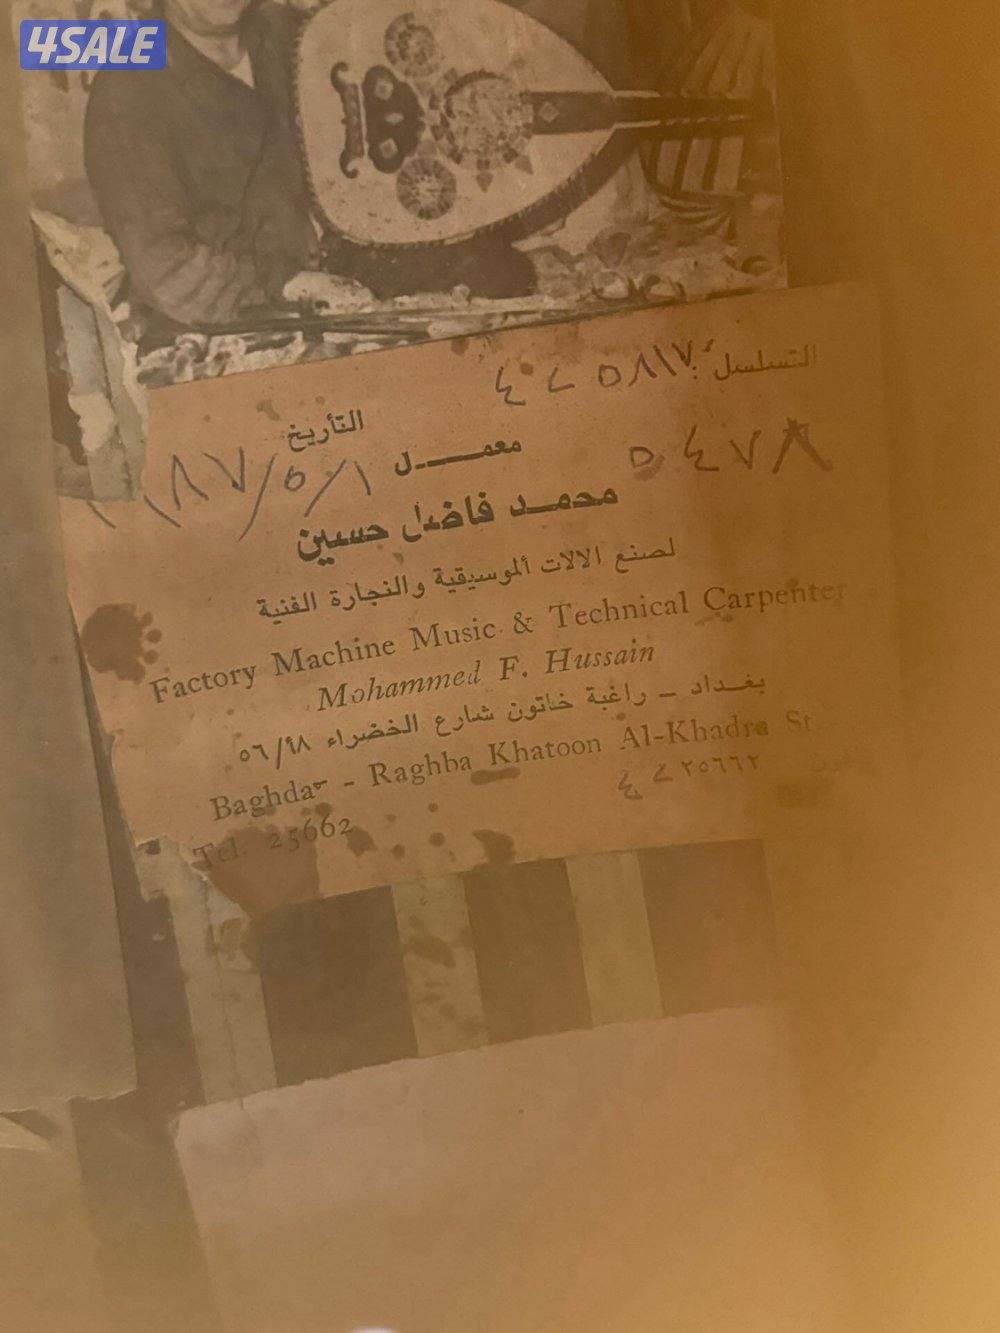 4SALE
التسلسل
التأريخ
٥٤٧٨
معمــــل
محمــد فاضل حسين
لصنع الالات ألموسيقية والنجارة الفنية
Factory Machine Music & Technical Carpenter
Mohammed F. Hussain
بغــداد – راغبة خاتون شارع الخضراء
Baghda - Raghba Khatoon Al-Khadra St
٢٥٦٦٢
Tel. 25662